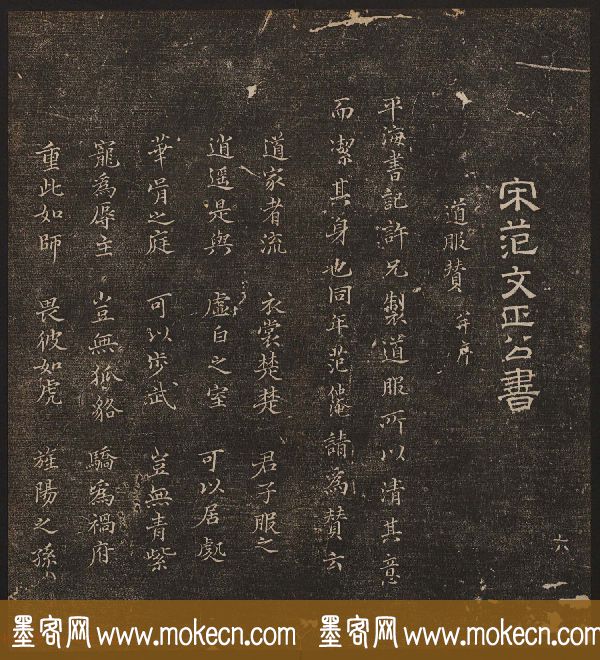 宋范文正公書
道服賛 并序
平海書記許兄製道服所以清其意
而潔其身也同年范仲淹請為賛云
道家者流 衣裳楚楚 君子服之
逍遥是與 虛白之室 可以居處
華胥之庭 可以步武 豈無青紫
寵為辱主 豈無狐貉 驕為禍府
重此如師 畏彼如虎 旌陽之孫
六
墨客网 www.mokecn.com 墨客网 www.mokecn.com